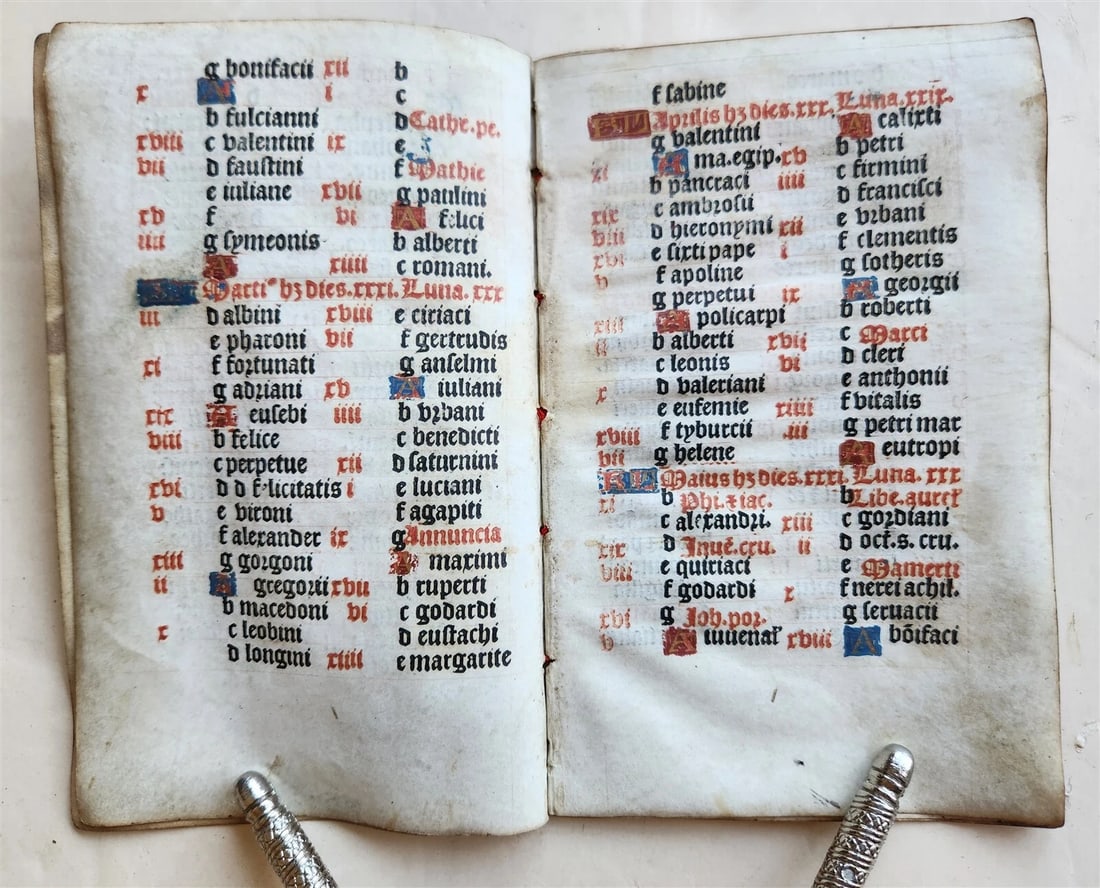 g bonifacii xii b
x A i c
b fulcianni d Cathr.pe.
xviii c valentini ix e
vii d faustini f Mathie
e iuliane xvii g paulini
xv f vi A felici
iiii g symeonis b alberti
A xiiii c romani.
Marti⁹ hꝫ dies.xxxi. Luna. xxx
iii d albini xviii e ciriaci
e pharoni vii f gertrudis
xi f fortunati g anselmi
g adriani xv A iuliani
xix A eusebi iiii b vrbani
viii b felice c benedicti
c perpetue xii d saturnini
xvi d d felicitatis i e luciani
v e vironi f agapiti
f alexander ix g Annuncia
xiii g gorgoni A maximi
ii A gregorii xvii b ruperti
b macedoni vi c godardi
x c leobini d eustachi
d longini xiiii e margarite
f sabine
KL Aprilis hꝫ dies.xxx. Luna.xxix.
g valentini A calixti
xi A ma.egip. xv b petri
b pancraci iiii c firmini
xix c ambrosii d francisci
viii d hieronymi xii e vrbani
xvi e sixti pape i f clementis
v f apoline g sotheris
g perpetui ix A georgii
xiii A policarpi b roberti
ii b alberti xvii c Marci
c leonis vi d cleri
x d valeriani e anthonii
e eufemie xiiii f vitalis
xviii f tyburcii iii g petri mar
vii g helene A eutropi
KL Maius hꝫ dies.xxxi. Luna. xxx
xi b Phi.⁊ iac. b Libe.aurer
c alexandri. xiii c gordiani
xix d Inuē.cru. ii d oct.s. cru.
viii e quiriaci e Mamerti
f godardi x f nerei achil.
xvi g Joh.por. g seruacii
v A iuuenal xviii A bōifaci